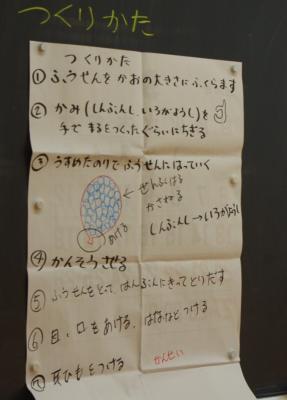 つくりかた
つくりかた
① ふうせんをかおの大きさにふくらます
② かみ(しんぶんし、いろがようし)を
手でまるをつくったぐらいにちぎる
③ うすめたのりでふうせんにはっていく
ぜんぶはる
かさねる
しんぶんし→いろがようし
あける
④ かんそうさせる
⑤ ふうせんをとって はんぶんにきってとりだす
⑥ 目、口をあける、はななどつける
⑦ 耳ひもをつける
かんせい